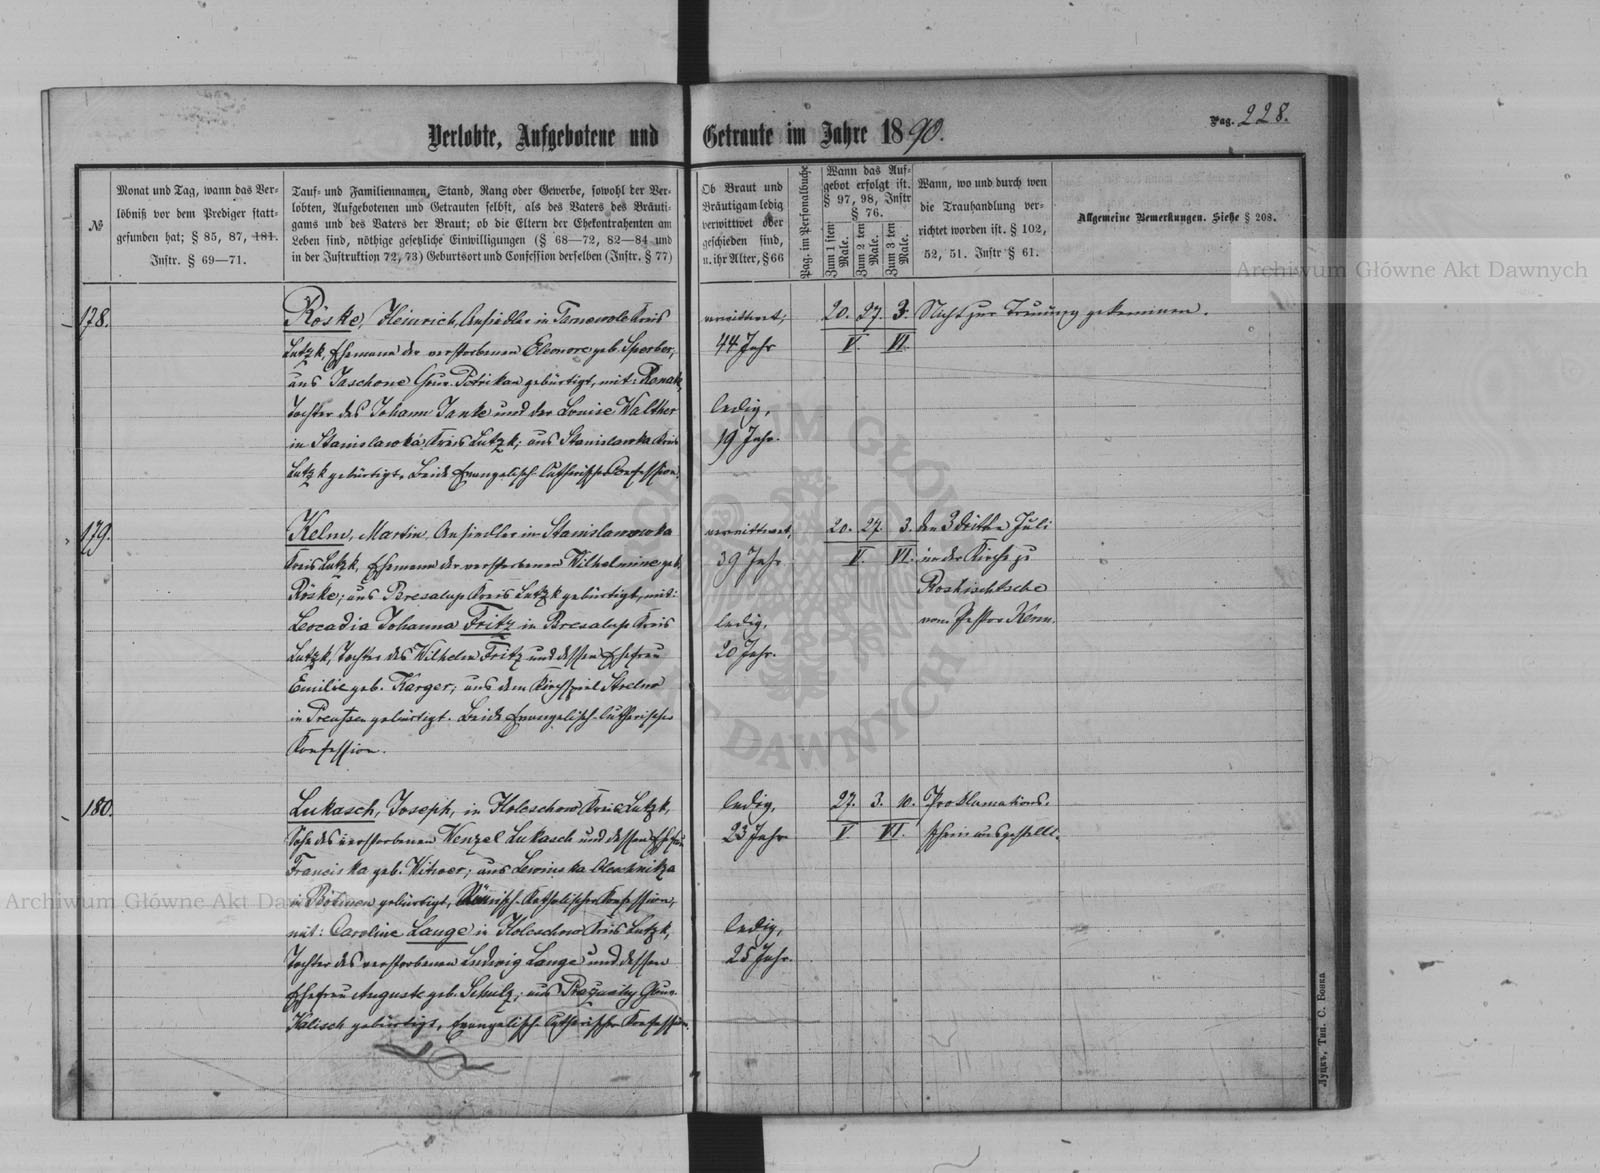 Verlobte, Aufgebotene und Getraute im Jahre 1890.
Pag. 228.
№
Monat und Tag, wann das Ver-
löbniß vor dem Prediger statt-
gefunden hat; § 85, 87, 181.
Instr. § 69—71.
Tauf- und Familiennamen, Stand, Rang oder Gewerbe, sowohl der Ver-
lobten, Aufgebotenen und Getrauten selbst, als des Vaters des Bräuti-
gams und des Vaters der Braut; ob die Eltern der Ehekontrahenten am
Leben sind, nöthige gesetzliche Einwilligungen (§ 68—72, 82—84 und
in der Instruktion 72, 73) Geburtsort und Confession derselben (Instr. § 77)
Ob Braut und
Bräutigam ledig
verwittwet oder
geschieden sind,
u. ihr Alter, § 66
Pag. im Personalbuche
Wann das Auf-
gebot erfolgt ist.
§ 97, 98, Instr
§ 76.
Zum 1 sten Male.
Zum 2 ten Male.
Zum 3 ten Male.
Wann, wo und durch wen
die Trauhandlung ver-
richtet worden ist. § 102,
52, 51. Instr § 61.
Allgemeine Bemerkungen. Siehe § 208.
178.
Röske, Heinrich, Ansiedler in Tarnowole Kreis
Lutzk, Ehemann der verstorbenen Eleonore geb. Sperber,
aus Jaschone Gouv. Petrikau gebürtigt, mit:
Tochter des Johann Janke und der Louise Walther
in Stanislawka Kreis Lutzk; aus Stanislawka Kreis
Lutzk gebürtigt. Beide Evangelisch-Lutherischer Confession.
verwittwet,
44 Jahr
ledig,
19 Jahr.
20. 27. 3.
V. VI.
Nicht zur Trauung gekommen.
179.
Kelm, Martin, Ansiedler in Stanislawowka
Kreis Lutzk, Ehemann der verstorbenen Wilhelmine geb.
Röske; aus Bresalup Kreis Lutzk gebürtigt, mit:
Leocadia Johanna Fritz in Bresalup Kreis
Lutzk, Tochter des Wilhelm Fritz und dessen Ehefrau
Emilie geb. Karger; aus dem Kirchspiel Strelno
in Preussen gebürtigt. Beide Evangelisch-Lutherischer
Konfession.
verwittwet,
39 Jahr
ledig,
20 Jahr.
20. 27. 3.
V. VI.
den 3 dritten Juli
in der Kirche zu
Roshischtsche
vom Pastor Kern.
180.
Lukasch, Joseph, in Holeschow Kreis Lutzk,
Sohn des verstorbenen Wenzel Lukasch und dessen Ehefrau
Franciska geb. Witwer; aus
in Böhmen gebürtigt, Römisch-Katholischer Konfession,
mit: Caroline Lange in Holeschow Kreis Lutzk,
Tochter des verstorbenen Ludwig Lange und dessen
Ehefrau Auguste geb. Schulz; aus Gouv.
Kalisch gebürtigt, Evangelisch-Lutherischer Konfession.
ledig,
23 Jahr
ledig,
25 Jahr.
27. 3. 10.
V VI.
Proklamations-
schein ausgestellt.
Луцкъ, Тип. С. Бокка
Archiwum Główne Akt Dawnych
Archiwum Główne Akt Dawnych